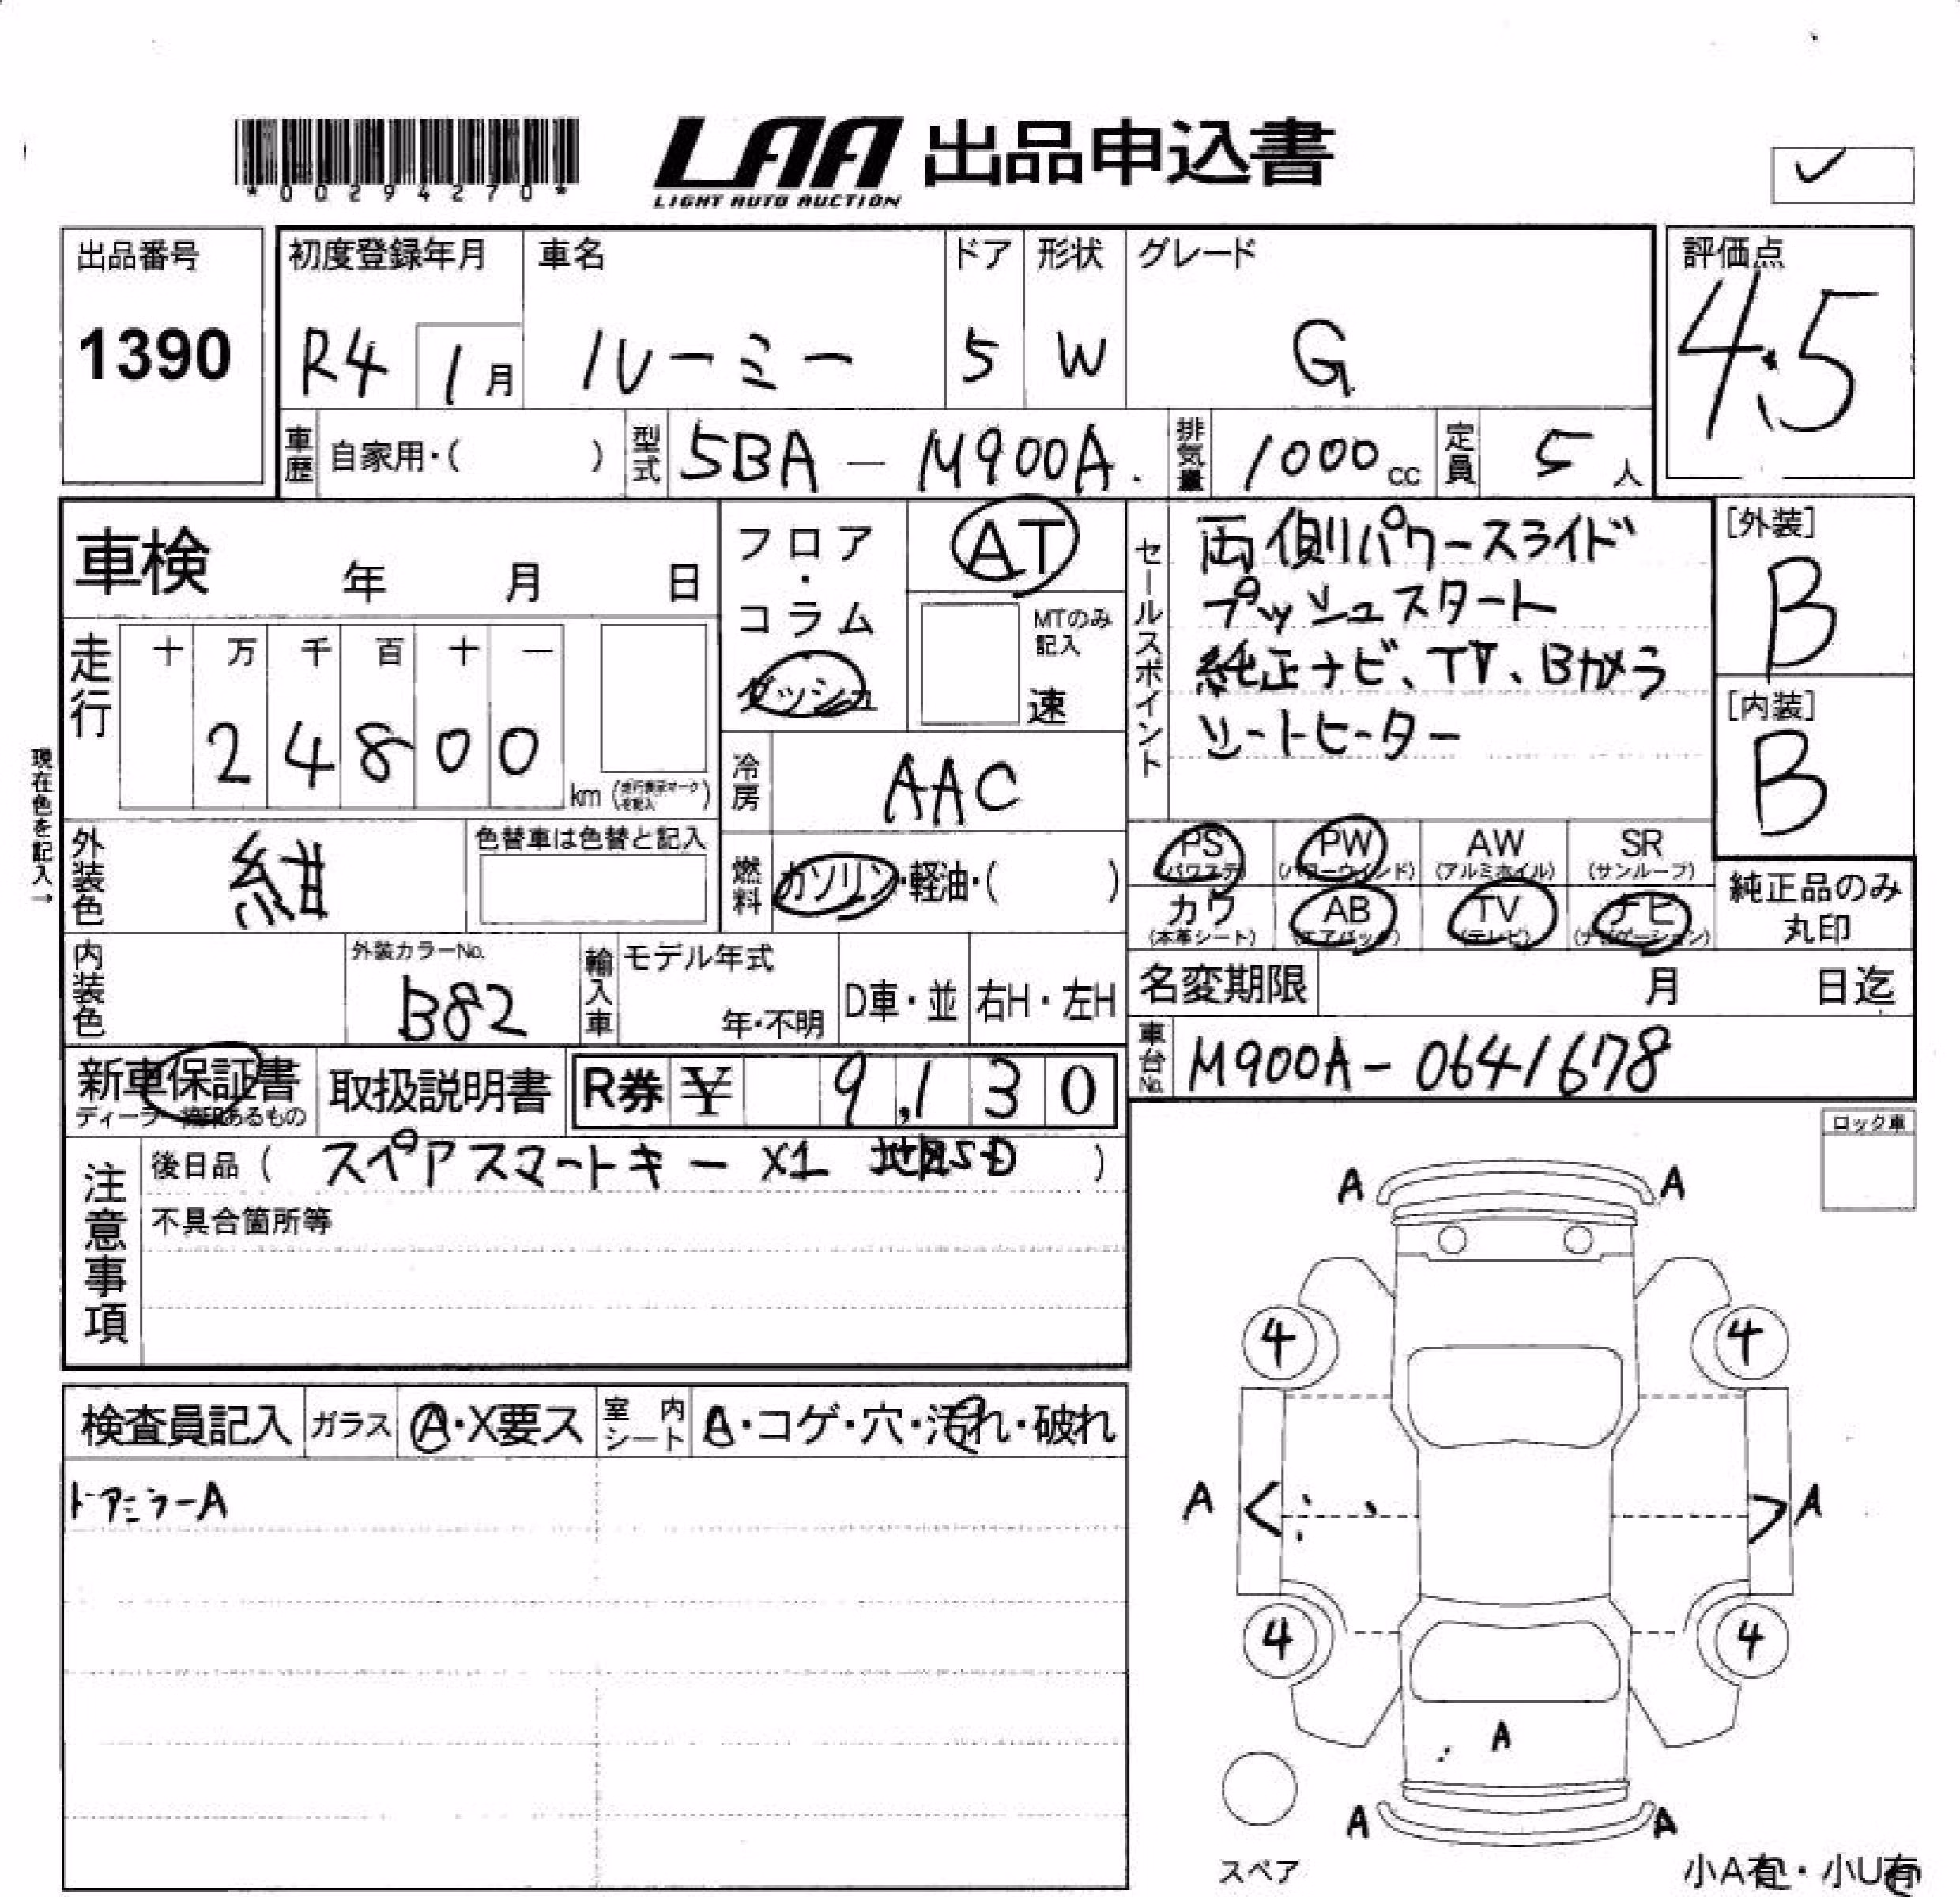 *00294270*
LAA 出品申込書
LIGHT AUTO AUCTION
✓
出品番号
1390
初度登録年月
R4 1月
車名
ルーミー
ドア
5
形状
W
グレード
G
評価点
4.5
車歴
自家用・( )
型式
5BA - M900A.
排気量
1000cc
定員
5人
車検
年 月 日
走行
十 万 千 百 十 一
2 4 8 0 0
km (走行表示マークを記入)
現在色を記入→
外装色
紺
色替車は色替と記入
内装色
外装カラーNo.
B82
フロア
・
コラム
ダッシュ
AT
MTのみ
記入
速
冷房
AAC
燃料
ガソリン・軽油・( )
輸入車
モデル年式
年・不明
D車・並
右H・左H
セールスポイント
両側パワースライド
プッシュスタート
純正ナビ、TV、Bカメラ
シートヒーター
[外装]
B
[内装]
B
PS
(パワステ)
PW
(パワーウインド)
AW
(アルミホイル)
SR
(サンルーフ)
カワ
(本革シート)
AB
(エアバッグ)
TV
(テレビ)
ナビ
(ナビゲーション)
純正品のみ
丸印
名変期限
月 日迄
車台No.
M900A-0641678
新車保証書
ディーラー捺印あるもの
取扱説明書
R券 ¥ 9,130
注意事項
後日品 ( スペアスマートキー X1 地図SD )
不具合箇所等
検査員記入
ガラス
A・X要ス
室内
シート
・コゲ・穴・汚れ・破れ
ドアミラーA
ロック車
A A
4 4
A < > A
4 4
A
A A
スペア
小A有・小U有